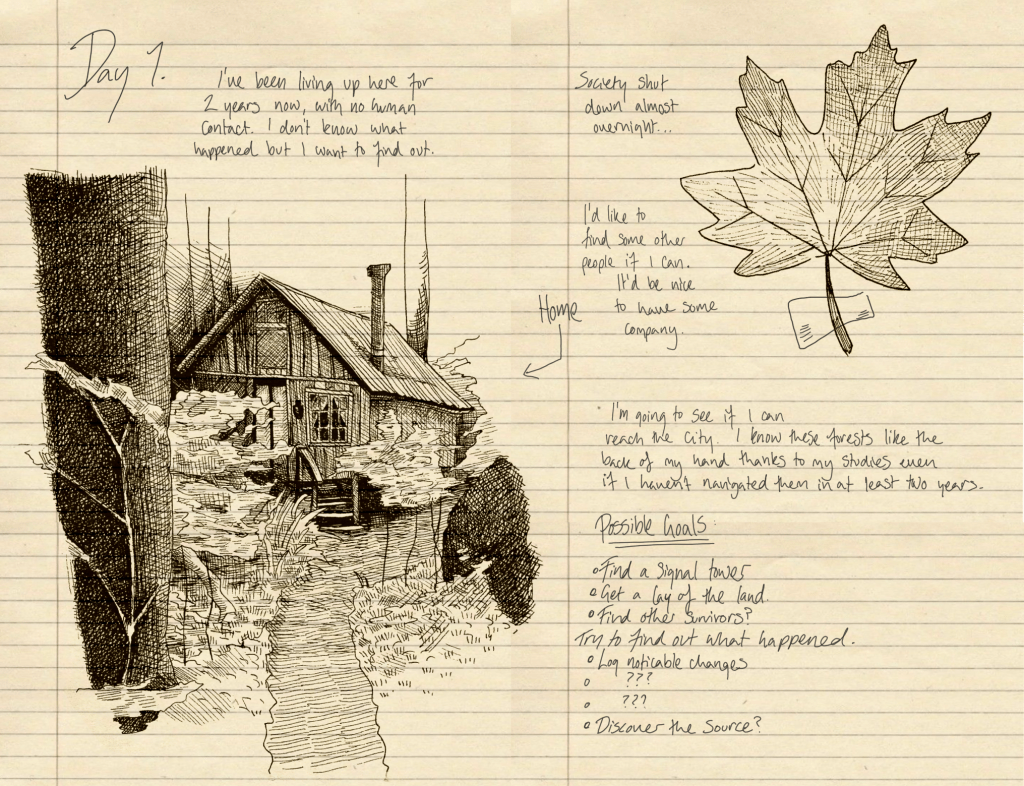 Day 1.
I've been living up here for
2 years now, with no human
contact. I don't know what
happened but I want to find out.
Home
Society shut
down almost
overnight...
I'd like to
find some other
people if I can.
It'd be nice
to have some
company.
I'm going to see if I can
reach the city. I know these forests like the
back of my hand thanks to my studies even
if I haven't navigated them in at least two years.
Possible Goals:
Find a signal tower
Get a lay of the land.
Find other survivors?
Try to find out what happened.
Log noticable changes
???
???
Discover the Source?